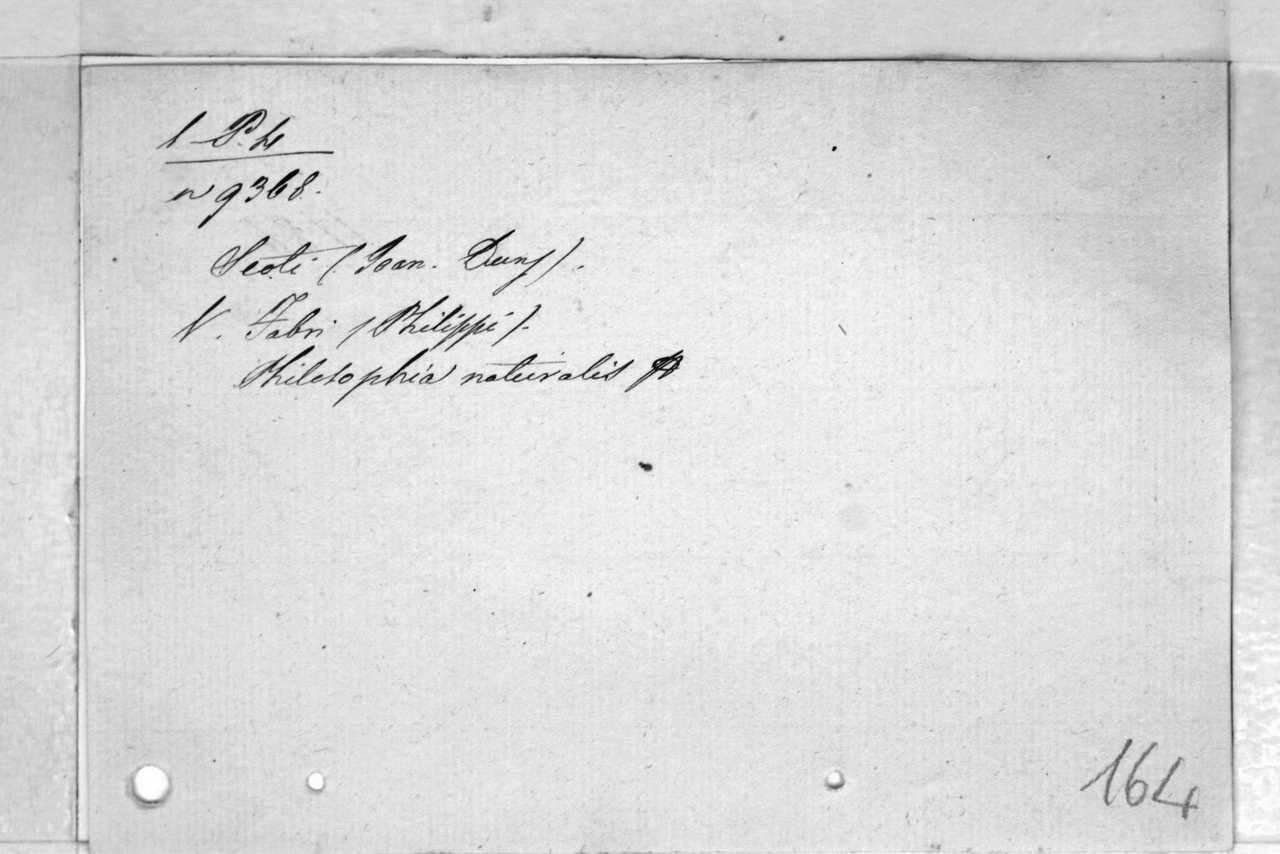 1 Ph
n 9368.
Scoti (Joan. Duns).
V. Fabri (Philippi).
Philosophia naturalis
164